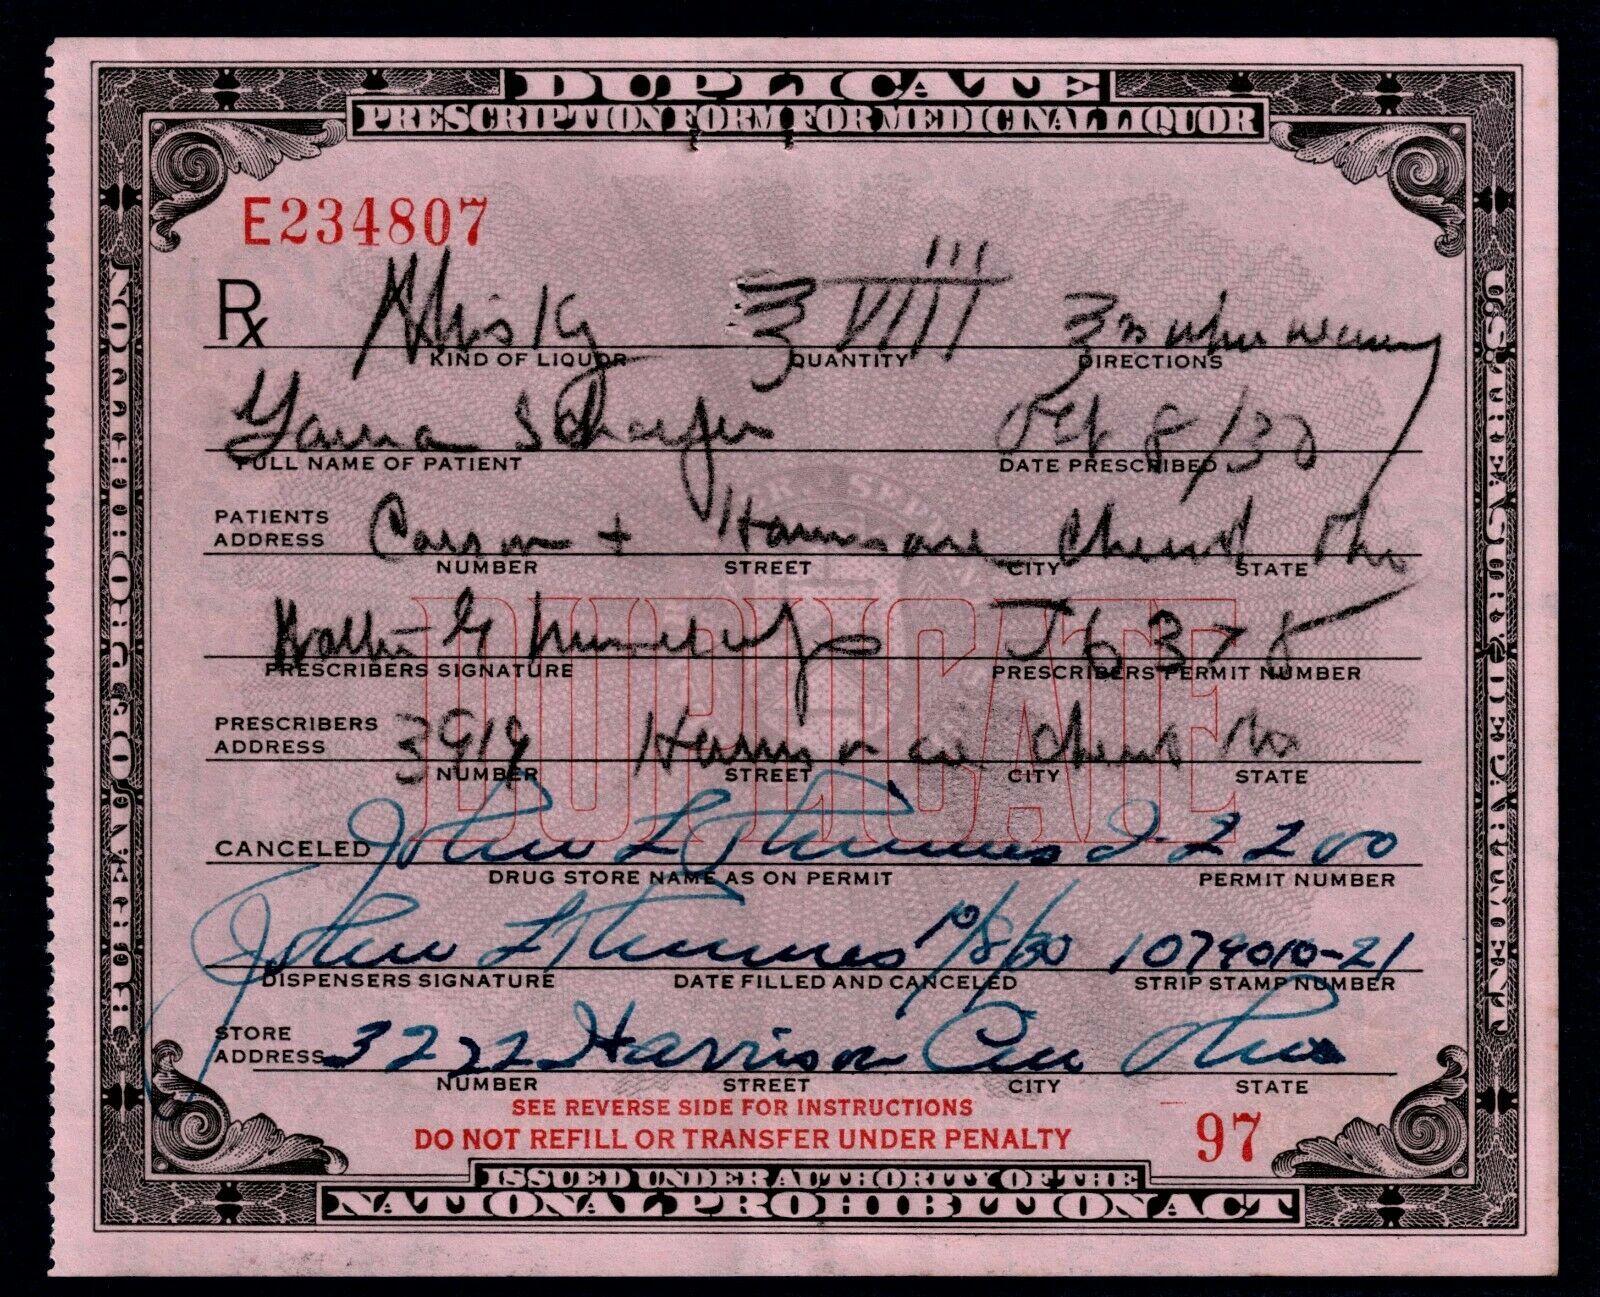 DUPLICATE
PRESCRIPTION FORM FOR MEDICINAL LIQUOR
E234807
Rx Whisky ℥ VIII ℥
KIND OF LIQUOR QUANTITY DIRECTIONS
Oct 8/30
FULL NAME OF PATIENT DATE PRESCRIBED
PATIENTS ADDRESS Carson + Harrison
NUMBER STREET CITY STATE
Walter G J6378
PRESCRIBERS SIGNATURE PRESCRIBERS PERMIT NUMBER
PRESCRIBERS ADDRESS 3919 Harrison
NUMBER STREET CITY STATE
CANCELED John L
DRUG STORE NAME AS ON PERMIT PERMIT NUMBER
John L 10/8/30 1079010-21
DISPENSERS SIGNATURE DATE FILLED AND CANCELED STRIP STAMP NUMBER
STORE ADDRESS 3222 Harrison Cin Ohio
NUMBER STREET CITY STATE
SEE REVERSE SIDE FOR INSTRUCTIONS
DO NOT REFILL OR TRANSFER UNDER PENALTY 97
ISSUED UNDER AUTHORITY OF THE
NATIONAL PROHIBITION ACT
DUPLICATE